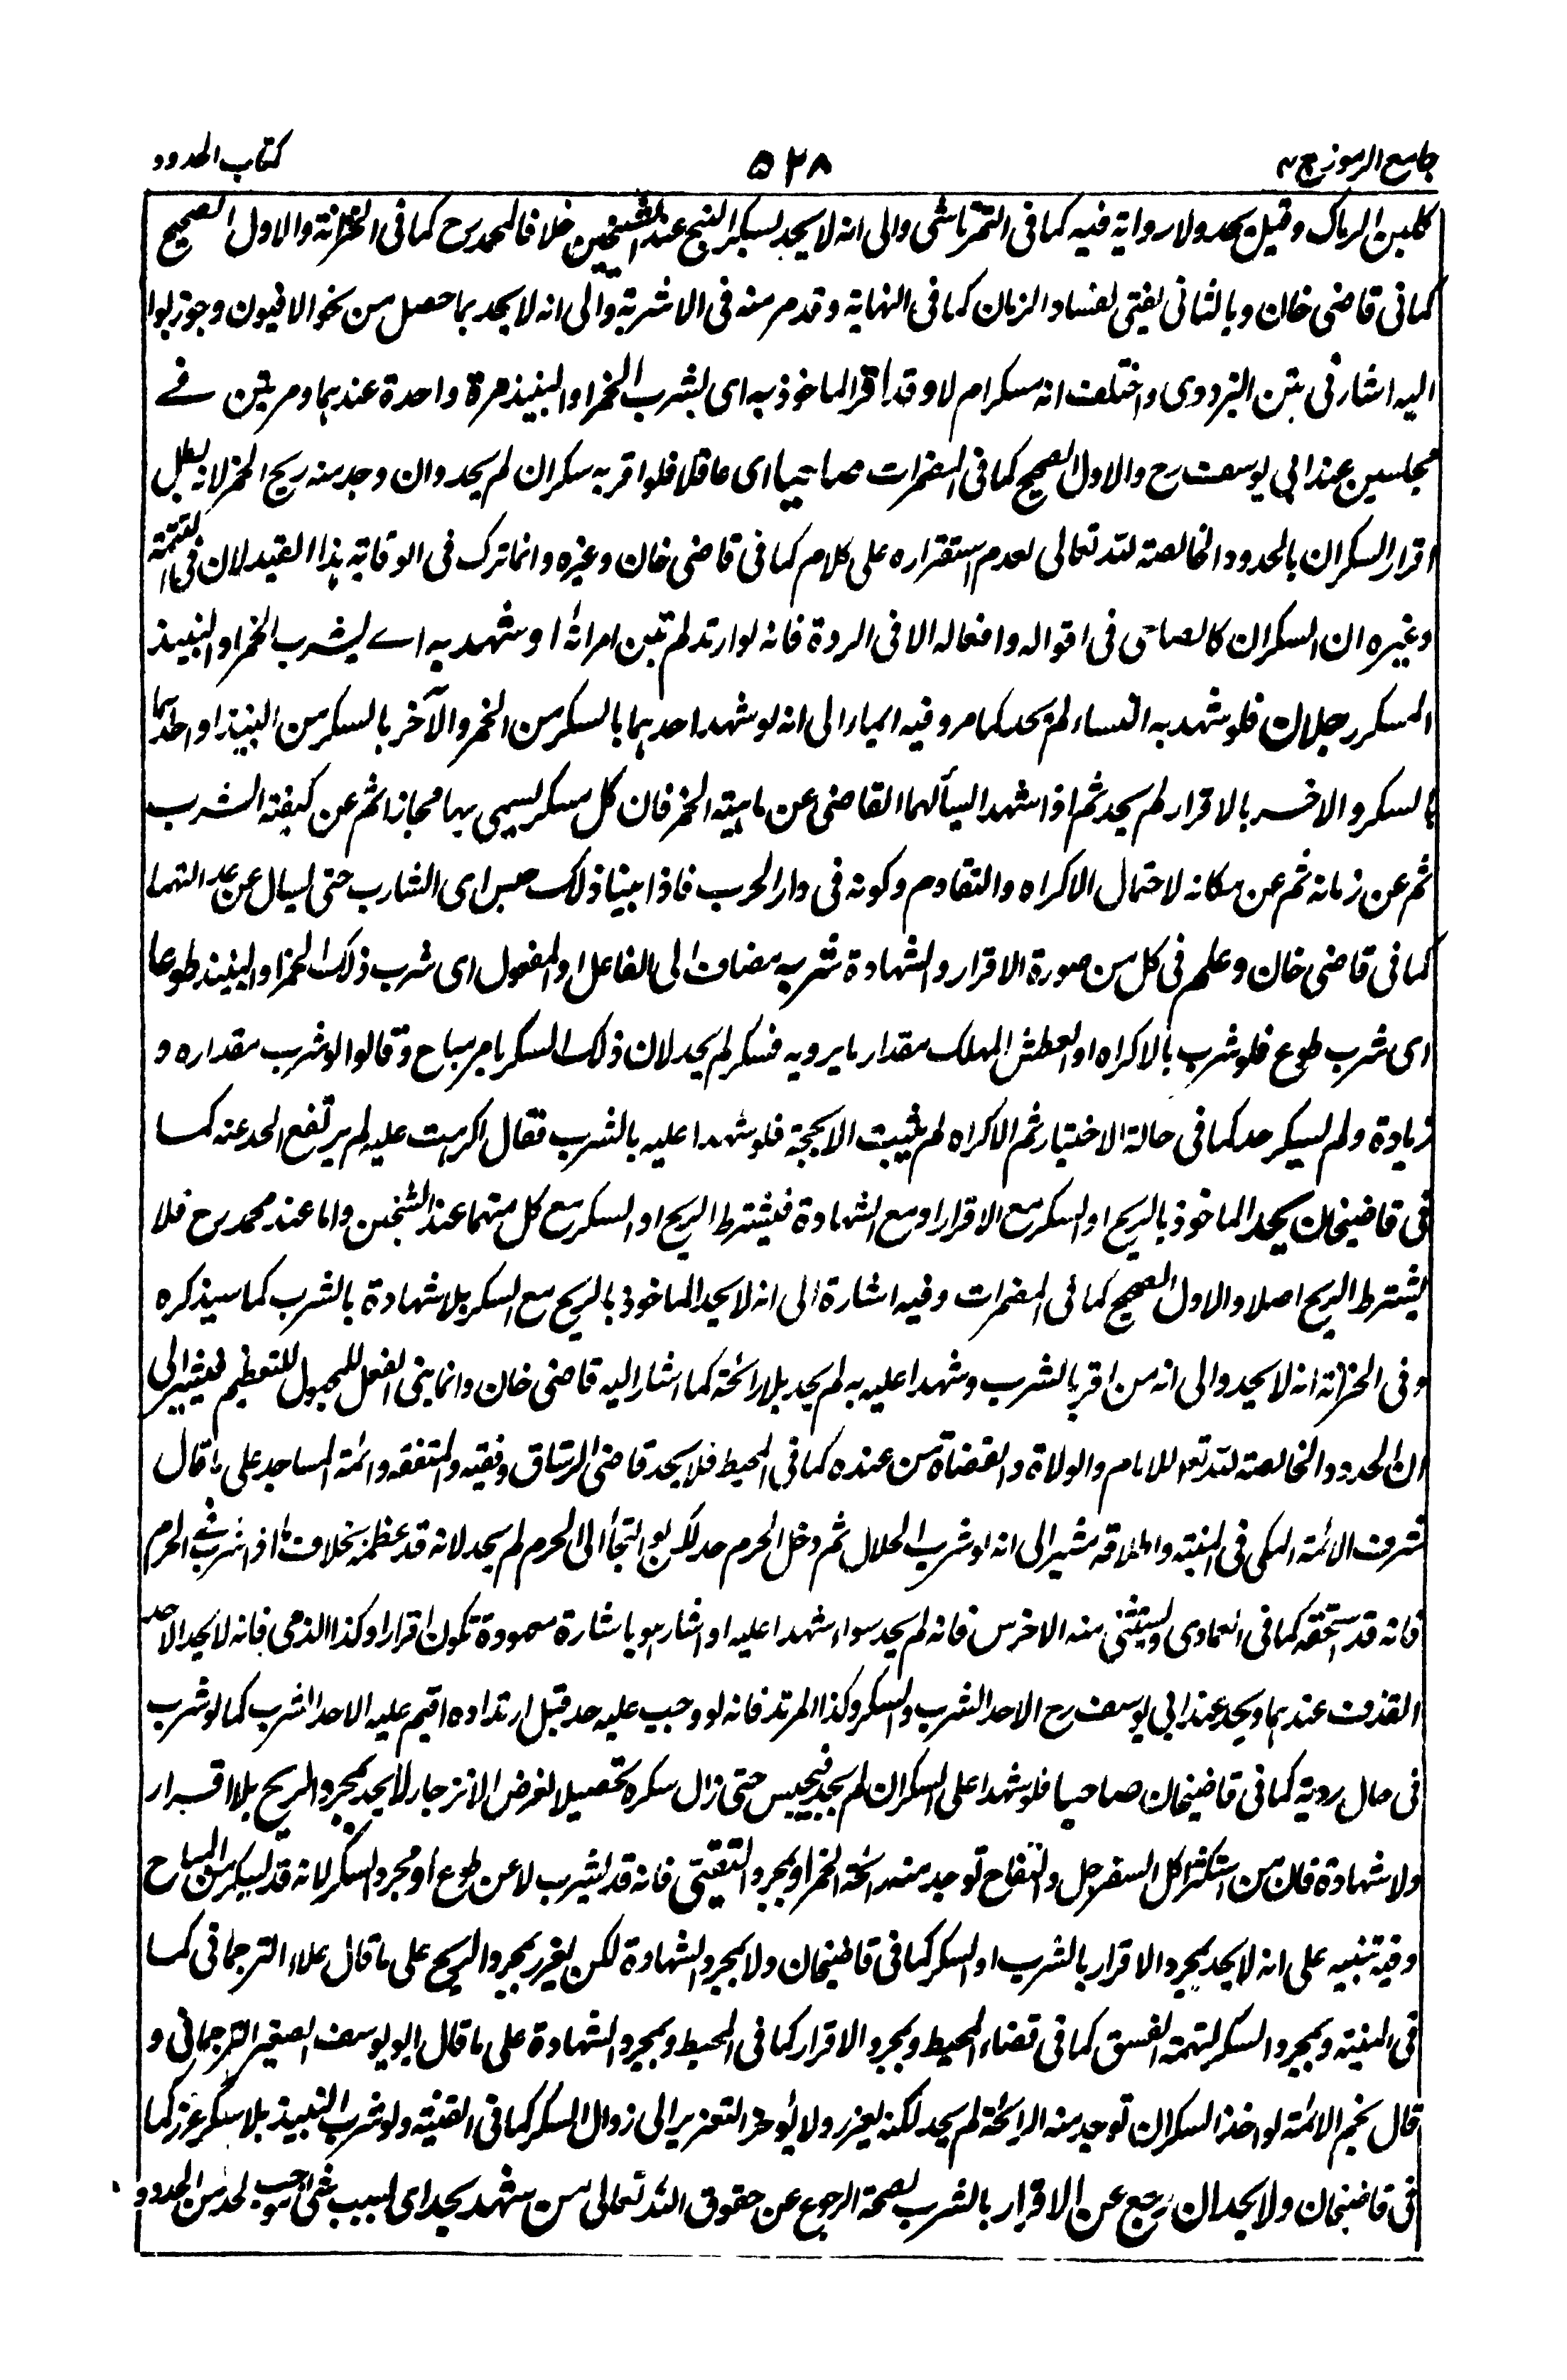 جامع الرموز ج ۲
۵۲۸
كتاب الحدود
كلبن الرماك وقيل يحد ولا رواية فيه كما فى التمرتاشى والى انه لا يحد بسكر البنج عند الشيخين خلافا لمحمد رح كما فى الخزانة والاول الصحيح
كما فى قاضى خان وبالثانى يفتى لفساد الزمان كما فى النهاية وقد مر منه فى الاشربة والى انه لا يحد بما حصل من نحو الافيون وجوز بوا
اليه اشار فى متن البزدوى واختلف انه مسكر ام لا وقد اقر الماخوذ به اى بشرب الخمر او النبيذ مرة واحدة عندهما ومرتين فے
مجلسين عند ابى يوسف رح والاول الصحيح كما فى المضمرات صاحيا اى عاقلا فلو اقر به سكران لم يحد وان وجد منه ريح الخمر لانه يبطل
اقرار السكران بالحدود الخالصة لله تعالى لعدم استقراره على كلام كما فى قاضى خان وغيره وانما ترك فى الوقاية هذا القيد لان فى التتمة
وغيره ان السكران كالصاحى فى اقواله وافعاله الا فى الردة فانه لو ارتد لم تبن امرأته او شهد به اے بشرب الخمر او النبيذ
المسكر رجلان فلو شهد به النساء لم يحد كما مر وفيه ايماء الى انه لو شهد احدهما بالسكر من الخمر والآخر بالسكر من النبيذ او احدهما
بالسكر والاخر بالاقرار لم يحد ثم اذا شهدا يسألهما القاضى عن ماهية الخمر فان كل مسكر يسمى بها مجازا ثم عن كيفية الشرب
ثم عن زمانه ثم عن مكانه لاحتمال الاكراه والتقادم وكونه فى دار الحرب فاذا بينا ذلك حبس اى الشارب حتى يسال عن عدالتهما
كما فى قاضى خان وعلم فى كل من صورة الاقرار والشهادة شربه مضاف الى الفاعل او المفعول اى شرب ذلك الخمر او النبيذ طوعا
اى شرب طوع فلو شرب بالاكراه او العطش المهلك مقدار ما يرويه فسكر لم يحد لان ذلك السكر بامر مباح وقالوا لو شرب مقداره و
زيادة ولم يسكر حد كما فى حالة الاختيار ثم الاكراه لم يثبت الا بحجة فلو شهدا عليه بالشرب فقال اكرهت عليه لم يرتفع الحد عنه كما
فى قاضيخان يحد الماخوذ بالريح او السكر مع الاقرار او مع الشهادة فيشترط الريح او السكر مع كل منهما عند الشيخين واما عند محمد رح فلا
يشترط الريح اصلا والاول الصحيح كما فى المضمرات وفيه اشارة الى انه لا يحد الماخوذ بالريح مع السكر بلا شهادة بالشرب كما سيذكره
وفى الخزانة انه لا يحد والى انه من اقر بالشرب وشهدا عليه به لم يحد بلا رائحة كما اشار اليه قاضى خان وانما بنى الفعل للمجهول للتعظيم فيشير الى
ان الحدود الخالصة لله تعـ للامام والولاة والقضاة من عنده كما فى المحيط فلا يحد قاضى الرستاق وفقيه والمتفقه وائمة المساجد على ما قال
شرف الائمة المكى فى المنية واطلاقه مشير الى انه لو شرب الحلال ثم دخل الحرم حد لكن لو التجأ الى الحرم لم يحد لانه قد عظمه بخلاف ما اذا شرب فى الحرم
فانه قد استخفه كما فى العمادى ويستثنى منه الاخرس فانه لم يحد سواء شهدا عليه او اشار هو باشارة معهودة تكون اقرارا وكذا الذمى فانه لا يحد الا حد
القذف عندهما ويحد عند ابى يوسف رح الا حد الشرب والسكر وكذا المرتد فانه لو وجب عليه حد قبل ارتداده اقيم عليه الا حد الشرب كما لو شرب
فى حال ردته كما فى قاضيخان صاحيا فلو شهدا على السكران لم يحد فيحبس حتى زال سكره تحصيلا لغرض الانزجار لا يحد بمجرد الريح بلا اقرار
ولا شهادة فان من استكثر اكل السفرجل والتفاح توجد منه رائحة الخمر او بمجرد التقيئ فانه قد يشرب لا عن طوع او مجرد السكر لانه قد يسكر من المباح
وفيه تنبيه على انه لا يحد بمجرد الاقرار بالشرب او السكر كما فى قاضيخان ولا بمجرد الشهادة لكن يعزر بمجرد الريح على ما قال علاء الترجمانى كما
فى المنية وبمجرد السكر لتهمة الفسق كما فى قضاء المحيط وبمجرد الاقرار كما فى المحيط وبمجرد الشهادة على ما قال ابو يوسف الصغير الترجمانى و
قال نجم الائمة لو اخذ السكران توجد منه الرائحة لم يحد لكنه يعزر ولا يؤخر التعزير الى زوال السكر كما فى القنية ولو شرب النبيذ بلا سكر عزر كما
فى قاضيخان ولا يحد ان رجع عن الاقرار بالشرب لصحة الرجوع عن حقوق الله تعالى من شهد بحد اى بسبب شئ موجب لحد من الحدود